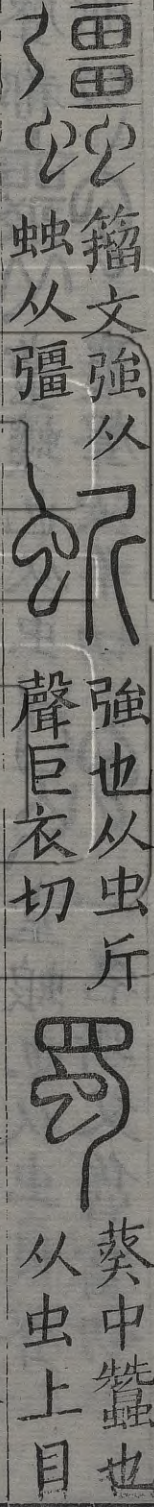 𧖑
籒文強从
䖵从彊
蚚
強也从虫斤
聲巨衣切
蜀
葵中蠶也
从虫上目